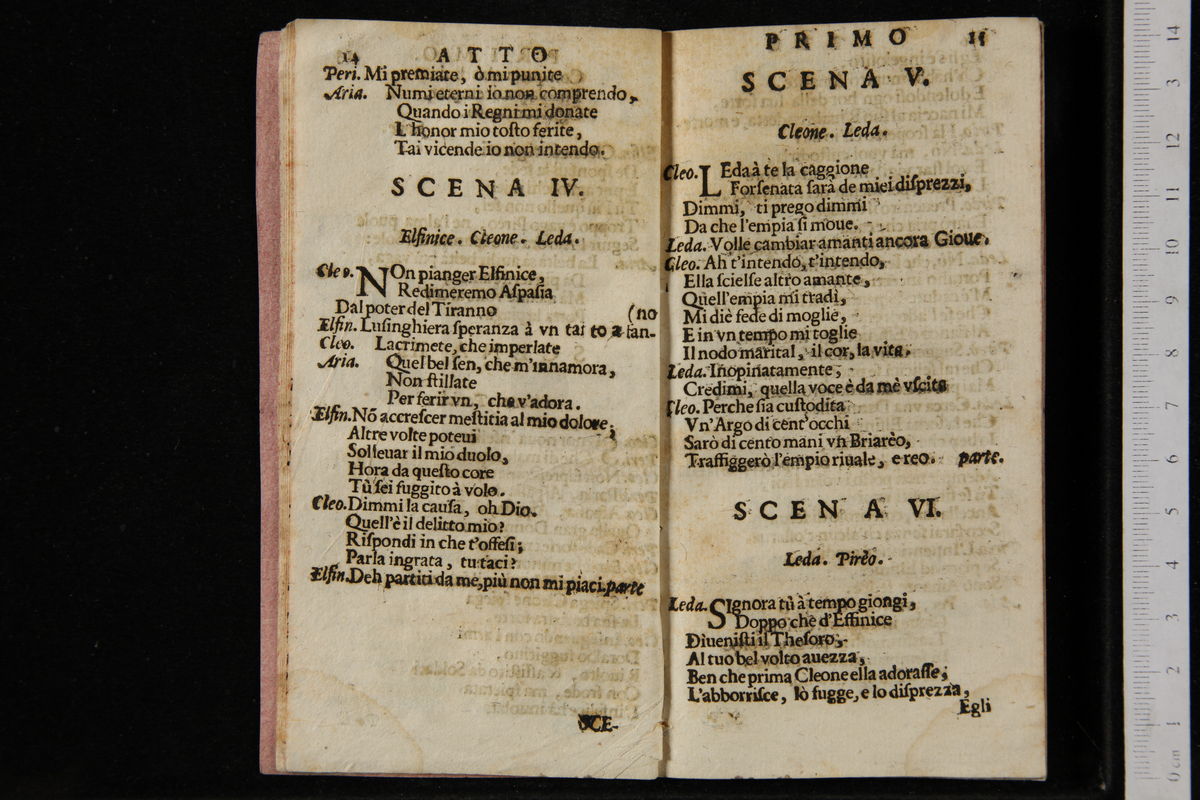 14 ATTO
Peri. Mi premiate, ò mi punite
Aria. Numi eterni io non comprendo,
Quando i Regni mi donate
L'honor mio toſto ferite,
Tai vicende io non intendo.
SCENA IV.
Elfinice. Cleone. Leda.
Cleo. NOn pianger Elfinice,
Redimeremo Aſpaſia
Dal poter del Tiranno (no
Elfin. Luſinghiera ſperanza à vn tal to a fan-
Cleo. Lacrimete, che imperlate
Aria. Quel bel ſen, che m'innamora,
Non ſtillate
Per ferir vn, che v'adora.
Elfin. Nō accreſcer meſtitia al mio dolore;
Altre volte poteui
Solleuar il mio duolo,
Hora da queſto core
Tù ſei fuggito à volo.
Cleo. Dimmi la cauſa, oh Dio.
Quell'è il delitto mio?
Riſpondi in che t'offeſi;
Parla ingrata, tu taci?
Elfin. Deh partiti da me, più non mi piaci. parte
SCE-
PRIMO 15
SCENA V.
Cleone. Leda.
Cleo. LEda à te la caggione
Forſenata ſarà de miei diſprezzi,
Dimmi, ti prego dimmi
Da che l'empia ſi moue.
Leda. Volle cambiar amanti ancora Gioue.
Cleo. Ah t'intendo, t'intendo,
Ella ſcielſe altro amante,
Quell'empia mi tradì,
Mi diè fede di moglie,
E in vn tempo mi toglie
Il nodo marital, il cor, la vita.
Leda. Inopinatamente,
Credimi, quella voce è da mè vſcita
Cleo. Perche ſia cuſtodita
Vn'Argo di cent'occhi
Sarò di cento mani vn Briarèo,
Traffiggerò l'empio riuale, e reo. parte.
SCENA VI.
Leda. Pirèo.
Leda. SIgnora tù à tempo giongi,
Doppo che d'Effinice
Diueniſti il Theſoro,
Al tuo bel volto auezza,
Ben che prima Cleone ella adoraſſe;
L'abborriſce, lò fugge, e lo diſprezza,
Egli